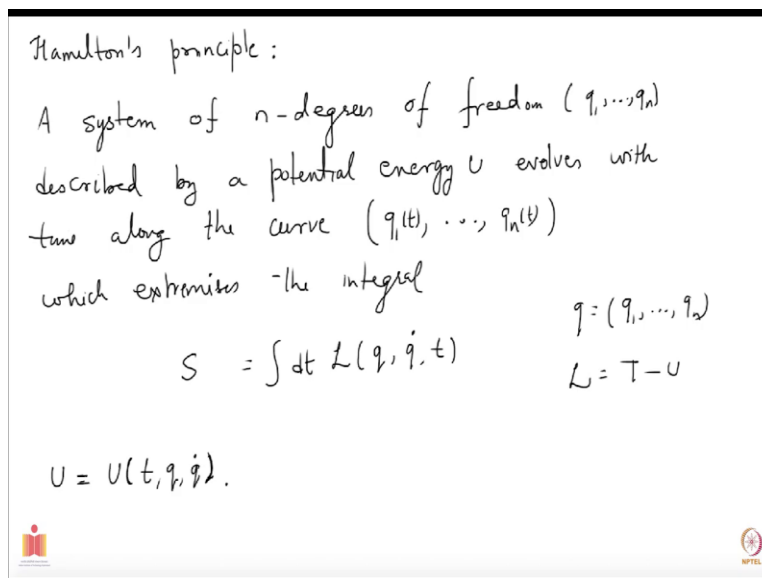 Hamilton's principle :
A system of n-degrees of freedom (q₁,...,qₙ)
described by a potential energy U evolves with
time along the curve (q₁(t), ..., qₙ(t))
which extremises the integral
q = (q₁,...,qₙ)
S = ∫ dt L(q, q̇, t)
L = T - U
U = U(t, q, q̇).
NPTEL